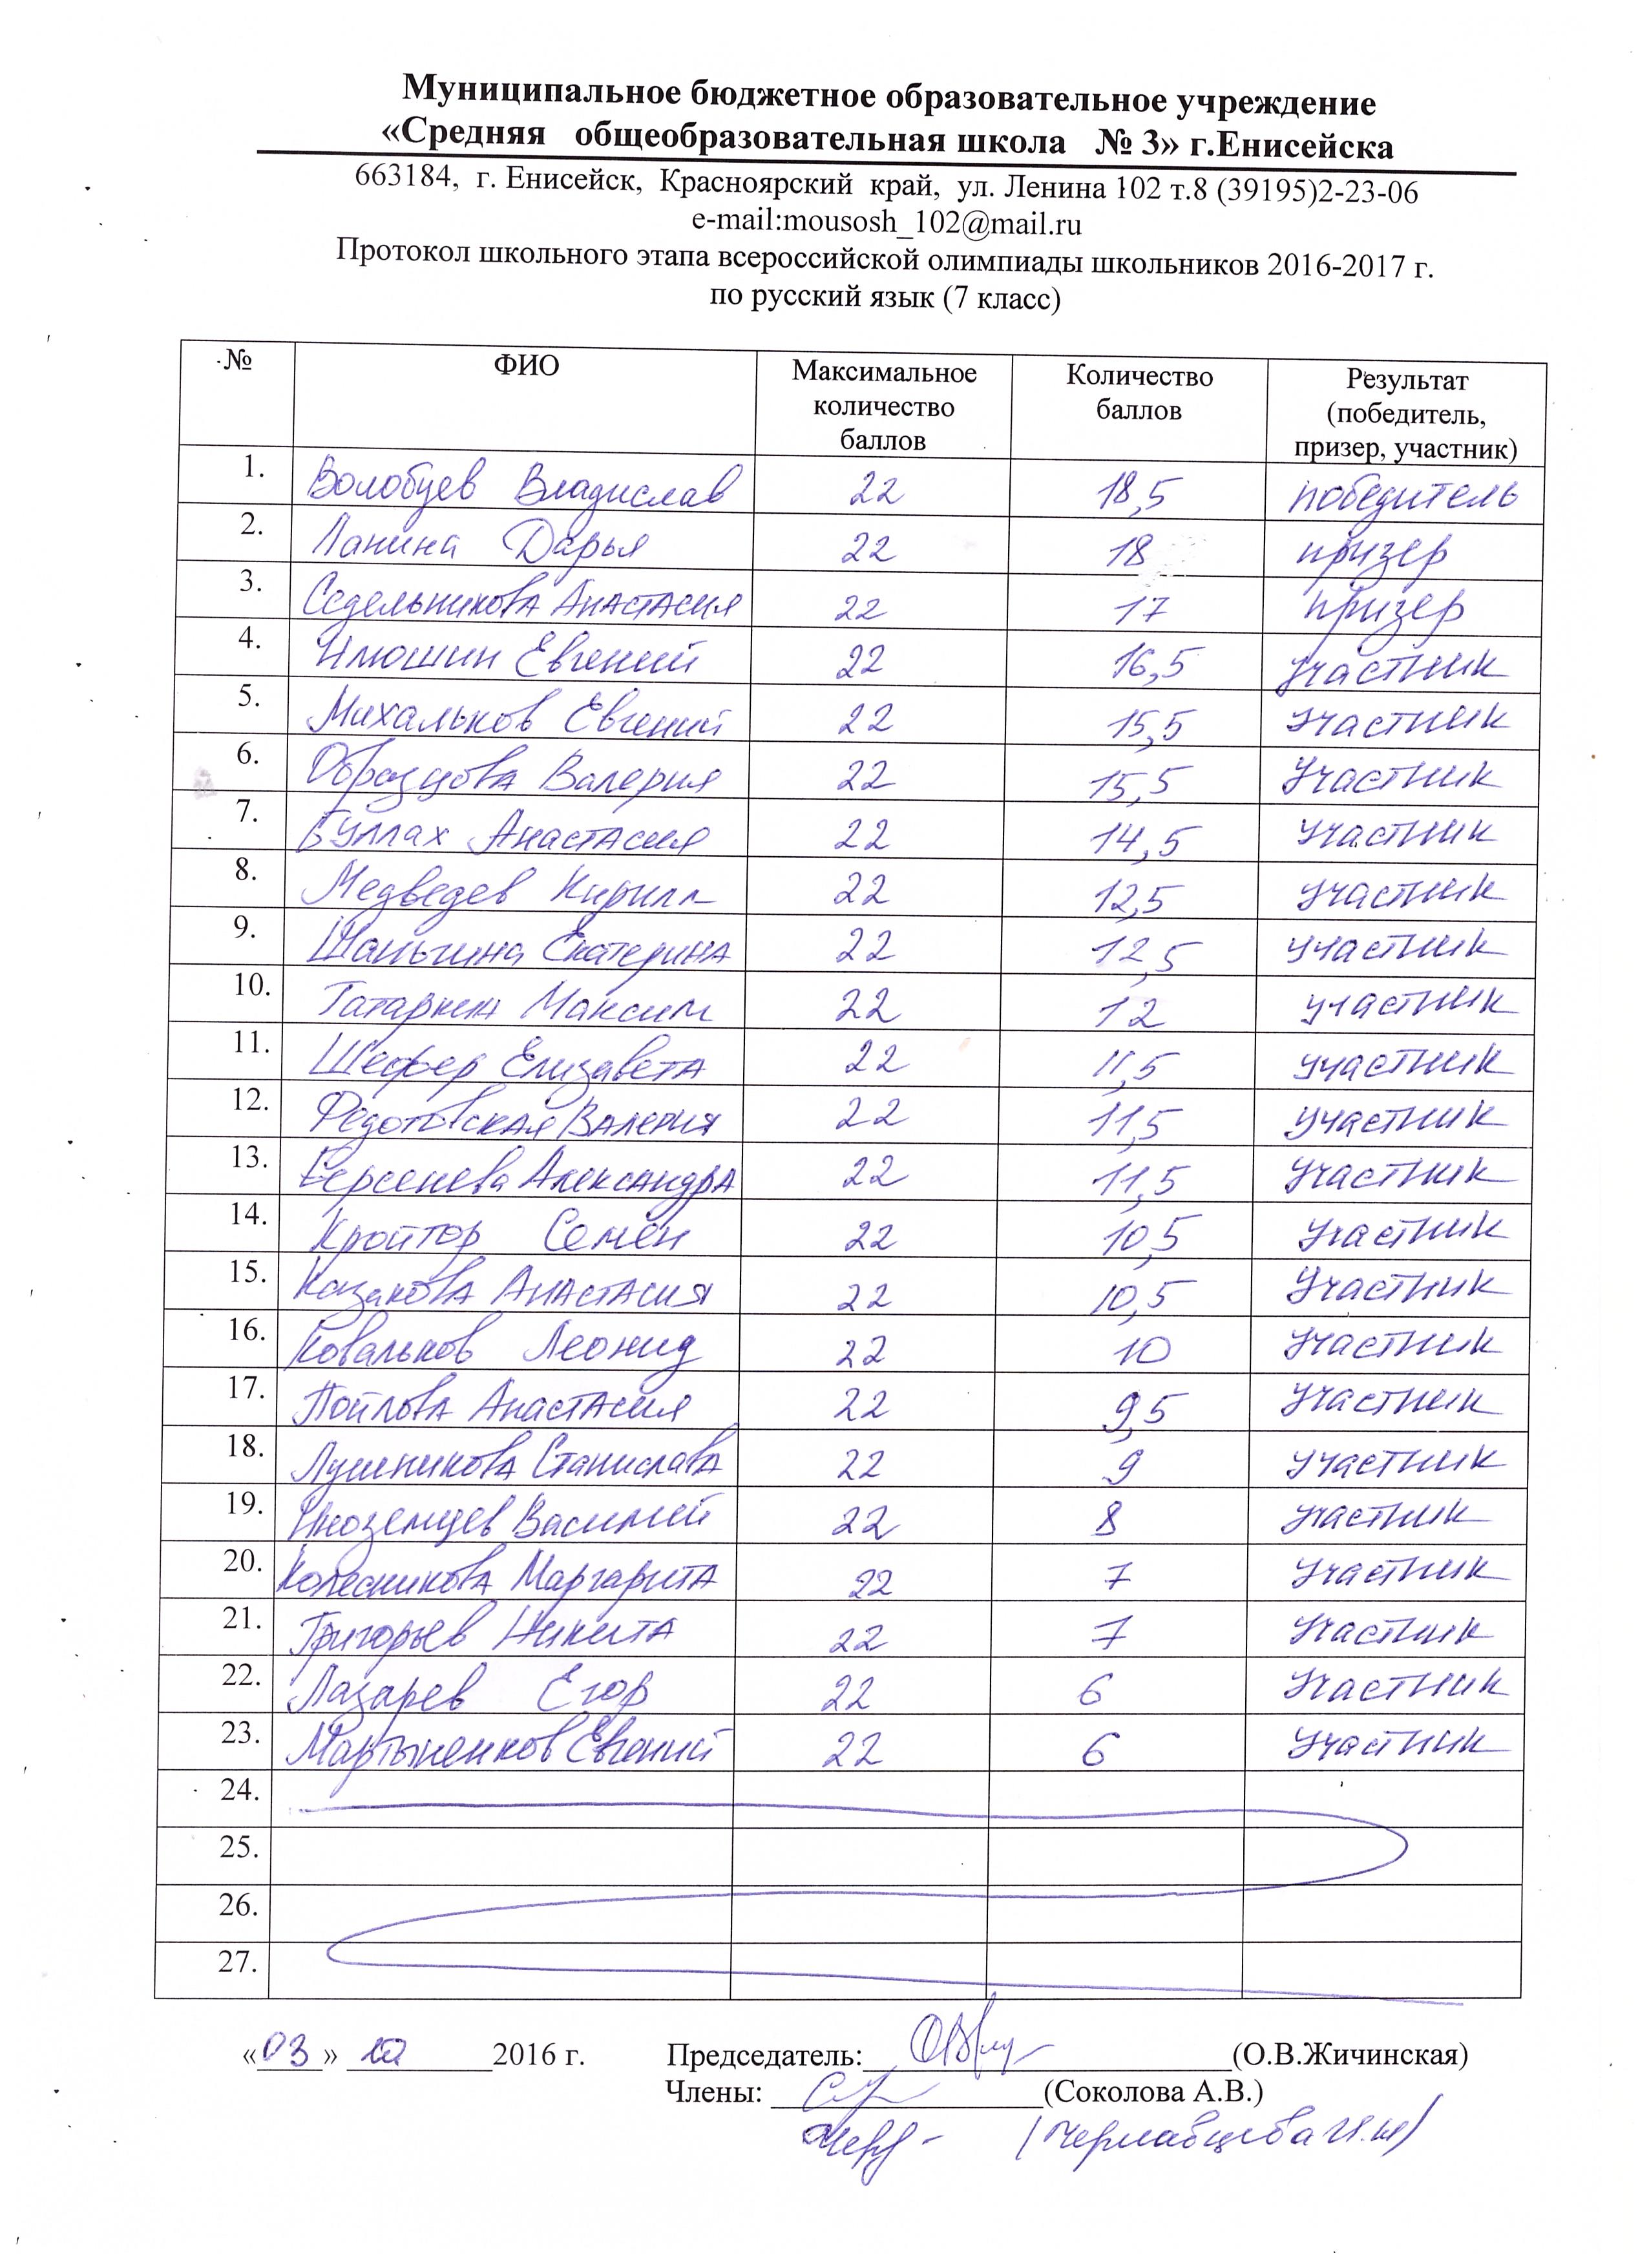 Муниципальное бюджетное образовательное учреждение
«Средняя общеобразовательная школа № 3» г.Енисейска
663184, г. Енисейск, Красноярский край, ул. Ленина 102 т.8 (39195)2-23-06
e-mail:mousosh_102@mail.ru
Протокол школьного этапа всероссийской олимпиады школьников 2016-2017 г.
по русский язык (7 класс)
№ ФИО Максимальное количество баллов Количество баллов Результат (победитель, призер, участник)
1. Волобуев Владислав 22 18,5 победитель
2. Ланина Дарья 22 18 призер
3. Седельникова Анастасия 22 17 призер
4. Илюшин Евгений 22 16,5 участник
5. Михальков Евгений 22 15,5 участник
6. Образцова Валерия 22 15,5 участник
7. Буллах Анастасия 22 14,5 участник
8. Медведев Кирилл 22 12,5 участник
9. Шаньгина Екатерина 22 12,5 участник
10. Татаркин Максим 22 12 участник
11. Шефер Елизавета 22 11,5 участник
12. Федотовская Валерия 22 11,5 участник
13. Берсенева Александра 22 11,5 участник
14. Кройтор Семён 22 10,5 участник
15. Казакова Анастасия 22 10,5 участник
16. Ковальков Леонид 22 10 участник
17. Пойлова Анастасия 22 9,5 участник
18. Лушникова Станислава 22 9 участник
19. Иноземцев Василий 22 8 участник
20. Колесникова Маргарита 22 7 участник
21. Григорьев Никита 22 7 участник
22. Лазарев Егор 22 6 участник
23. Мартыненков Евгений 22 6 участник
24.
25.
26.
27.
«03» 10 2016 г. Председатель: (О.В.Жичинская)
Члены: (Соколова А.В.)